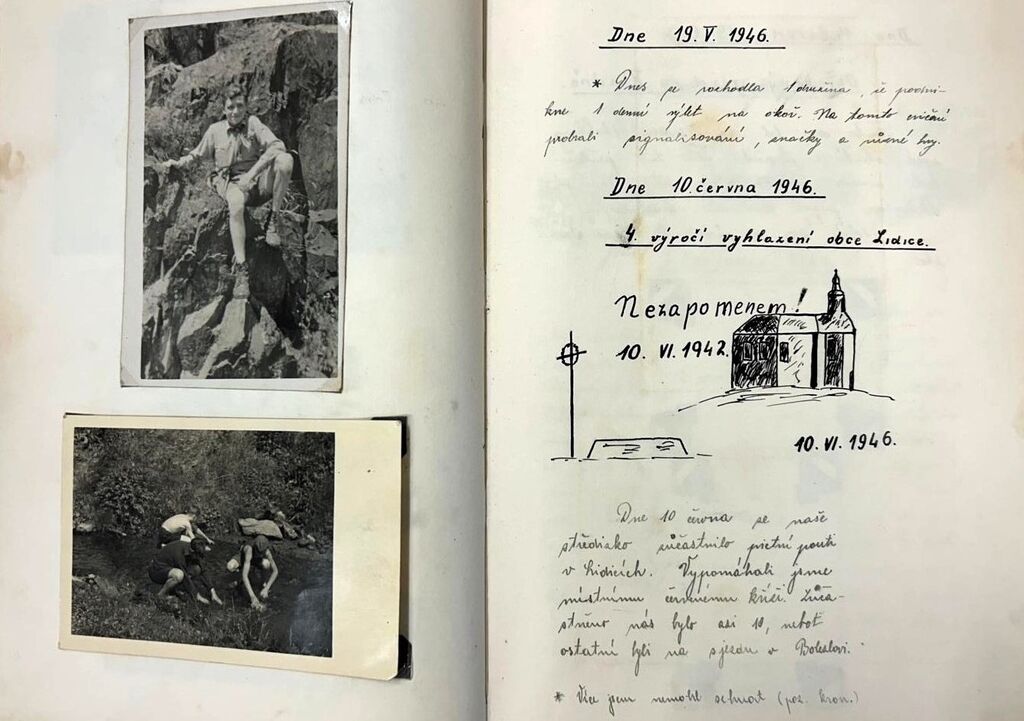 Dne 19. V. 1946.
* Dnes se rozhodla 1 družina, že podni-
kne 1 denní výlet na okoř. Na tomto cvičení
probrali signalisování, značky a různé hry.
Dne 10. června 1946.
4. výročí vyhlazení obce Lidice.
Nezapomenem!
10. VI. 1942.
10. VI. 1946.
Dne 10 června se naše
středisko zúčastnilo pietní pouti
v Lidicích. Vypomáhali jsme
místnímu červenému kříži. Zúča-
stněno nás bylo asi 10, neboť
ostatní byli na sjezdu v Boleslavi.
* Více jsem nemohl sehnat (poz. kron.)